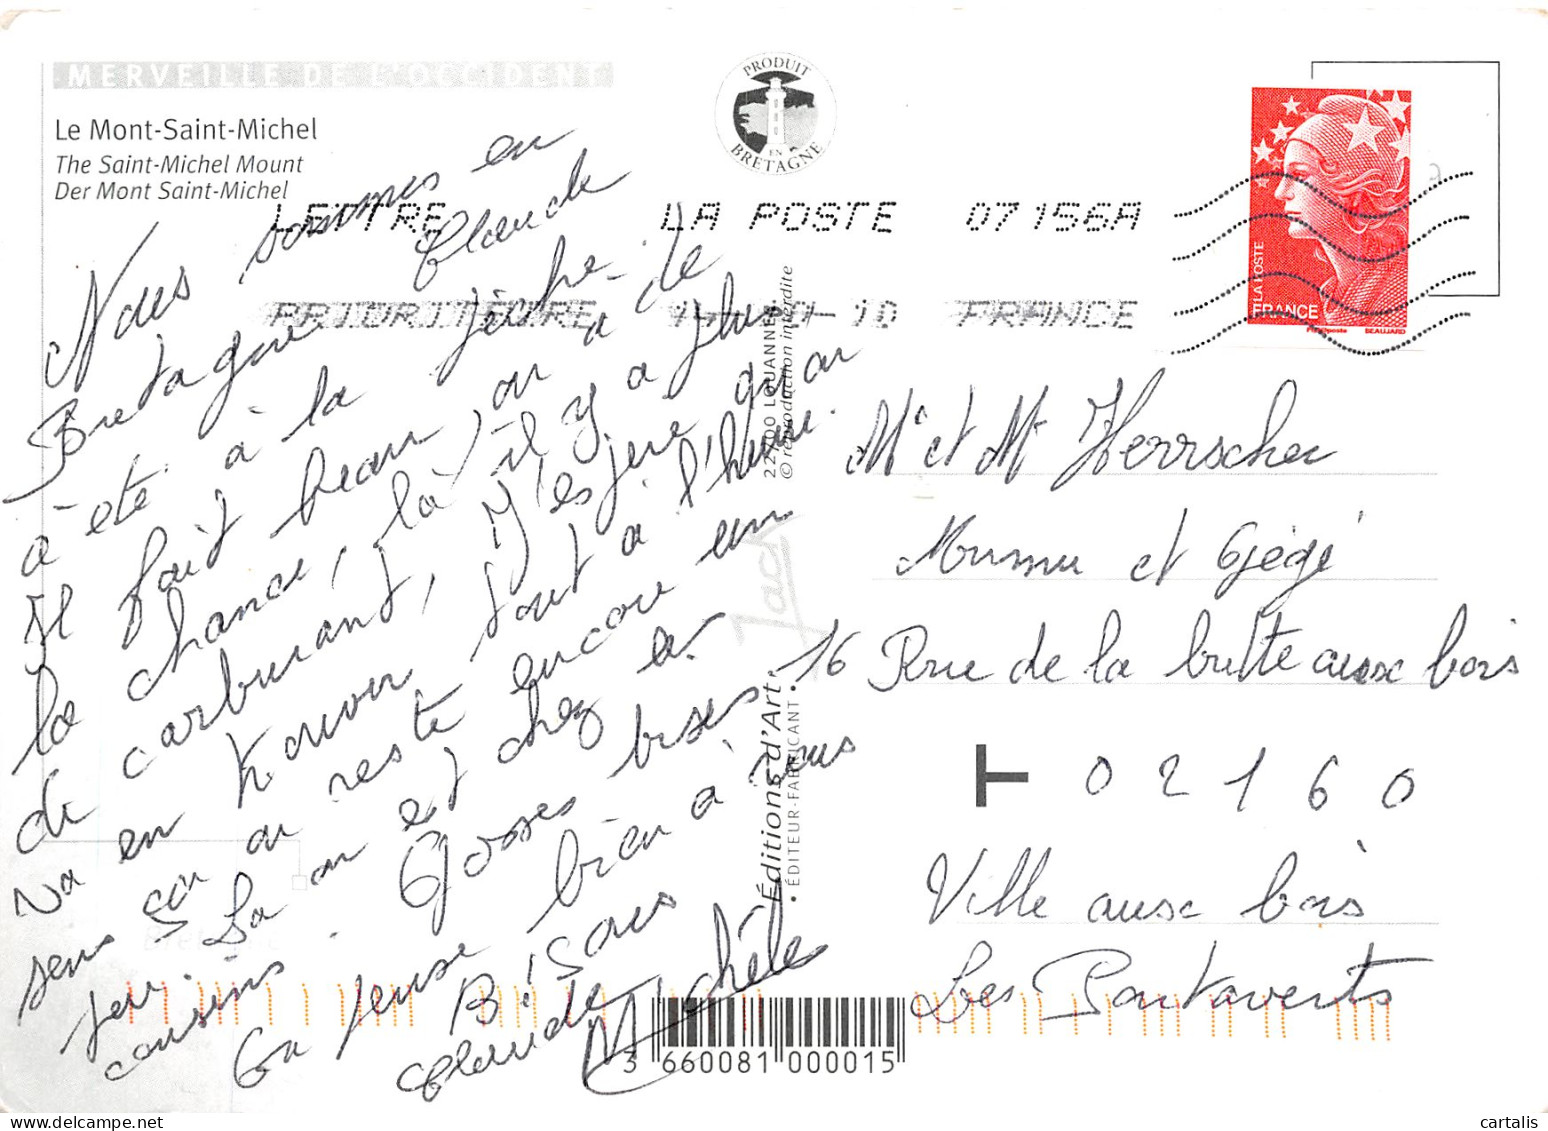 MERVEILLE DE L'OCCIDENT
Le Mont-Saint-Michel
The Saint-Michel Mount
Der Mont Saint-Michel
PRODUIT EN BRETAGNE
LETTRE LA POSTE 07156A
PRIORITAIRE 10 FRANCE
LA POSTE
FRANCE
Phil@poste BEAUJARD
Nous sommes en
Bretagne. Claude
a été à la pêche.
Il fait beau, on a de
la chance, là, il y a plus
de carburant, j'espère qu'on
va en trouver tout à l'heure.
sens on reste encore un
peu. La on est chez les
cousins. Grosses bises
On pense bien à vous
Bisous
Claude Michèle
22700 LOUANNEC
© reproduction interdite
Jack
Éditions d'Art
• ÉDITEUR-FABRICANT •
Mr et Me Herrscher
Mumu et Gégé
16 Rue de la butte aux bois
02160
Ville aux bois
Les Pontaverts
3 660081 000015
cartalis